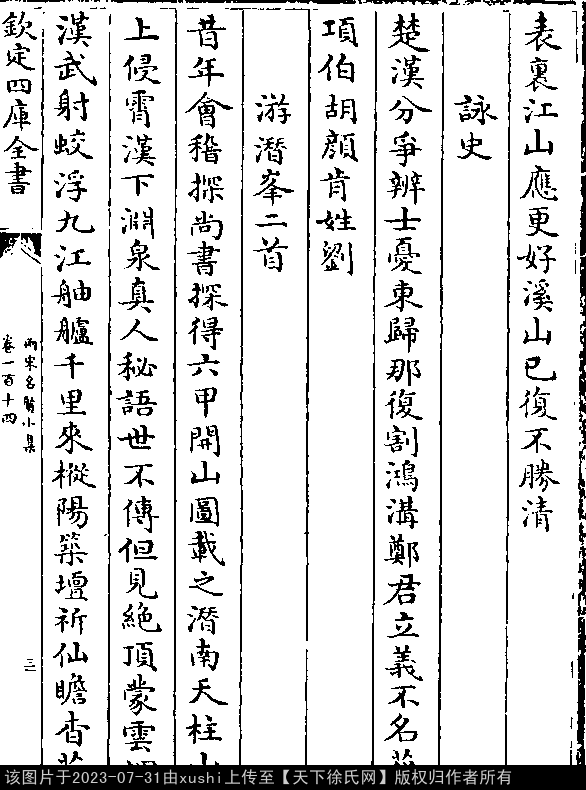 表裏江山應更好溪山已復不勝清
詠史
楚漢分爭辨士憂東歸那復割鴻溝鄭君立義不名
項伯胡顔肯姓劉
游潛峯二首
昔年會稽探尚書探得六甲開山圖載之潛南天柱山
上侵霄漢下淵泉真人秘語世不傳但見絶頂蒙雲
漢武射蛟浮九江舳艫千里來樅陽築壇祈仙瞻杳
欽定四庫全書
兩宋名賢小集
卷一百十四
三
该图片于2023-07-31由xushi上传至【天下徐氏网】版权归作者所有